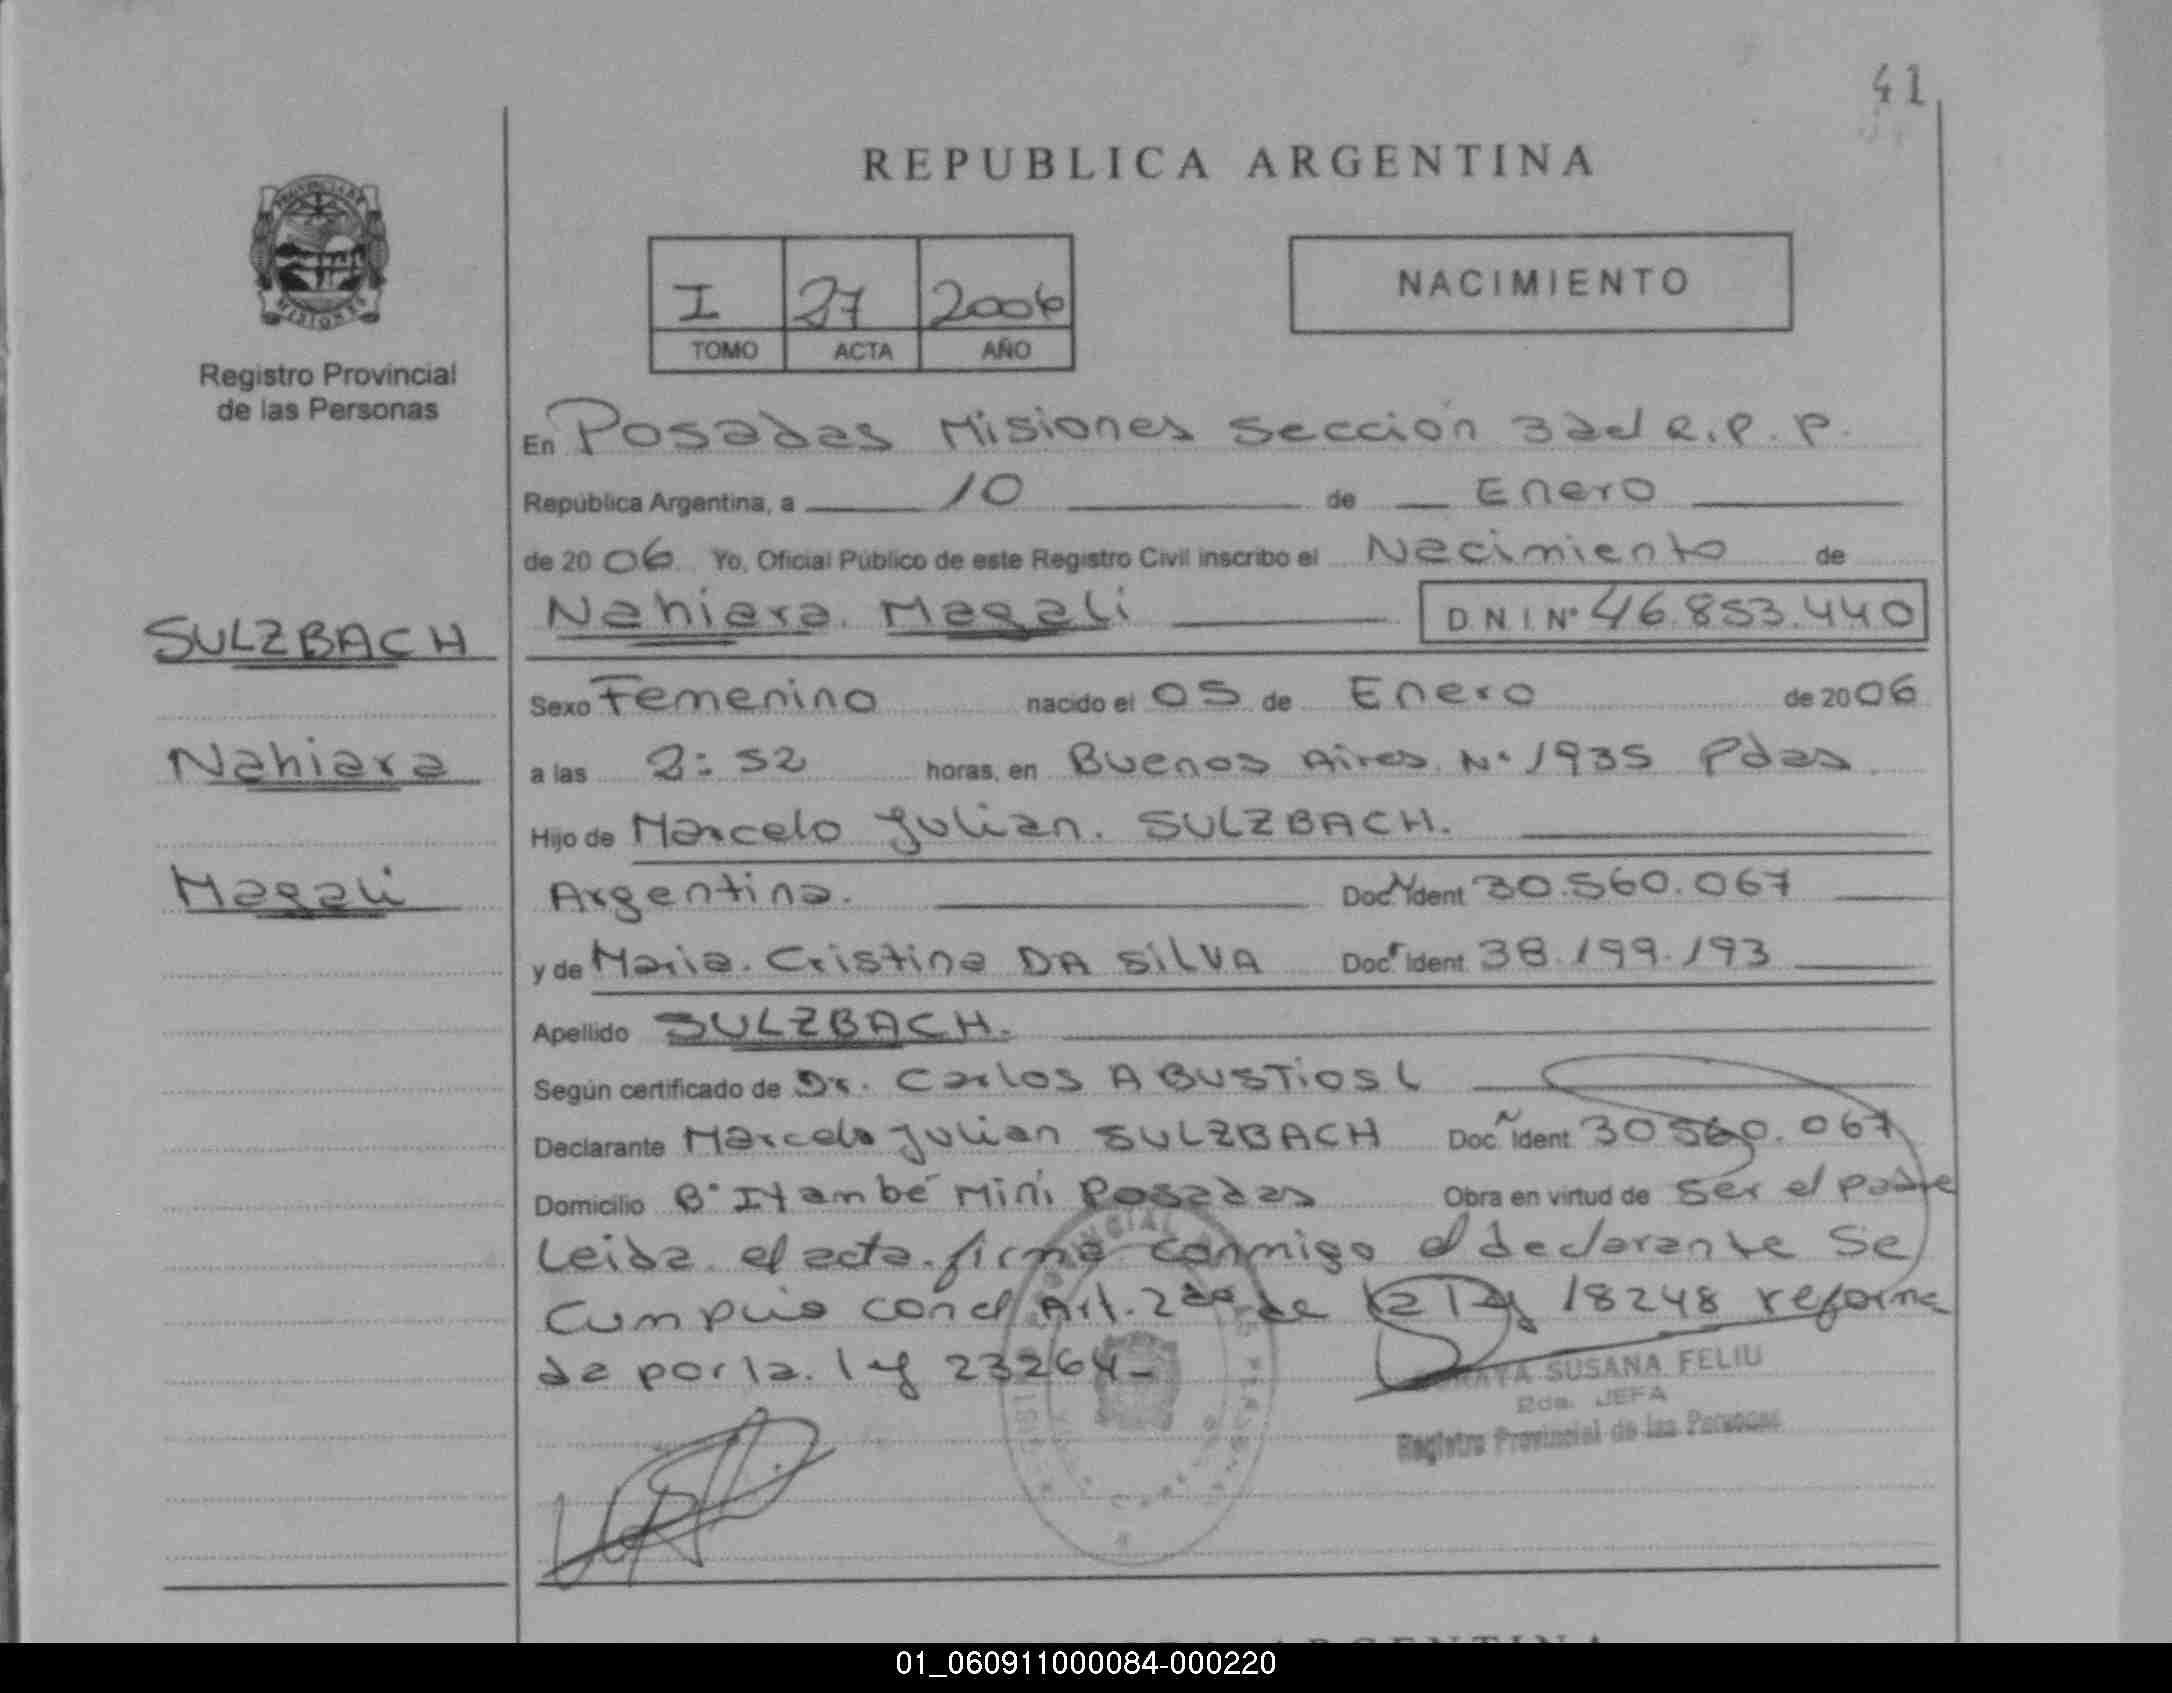 41
REPUBLICA ARGENTINA
PROVINCIA DE
MISIONES
Registro Provincial
de las Personas
I 27 2006
TOMO ACTA AÑO
NACIMIENTO
En Posadas Misiones Sección 3 del R.P.P.
República Argentina, a 10 de Enero
de 2006 Yo, Oficial Público de este Registro Civil inscribo el Nacimiento de
Nahiara Magali D.N.I. Nº 46.853.440
SULZBACH
Nahiara
Magali
Sexo Femenino nacido el 05 de Enero de 2006
a las 2:52 horas, en Buenos Aires Nº 1935 Pdas
Hijo de Marcelo Julian. SULZBACH.
Argentina. Doc. Ident 30.560.067
y de Maria Cristina DA SILVA Doc. Ident. 38.199.193
Apellido SULZBACH.
Según certificado de Dr. Carlos A BUSTIOS L
Declarante Marcelo Julian SULZBACH Doc. Ident 30560.067
Domicilio Bº Itambé Mini Posadas Obra en virtud de ser el padre
Leida el acta firma conmigo el declarante Se
Cumplio con el Art. 2 de la Ley 18248 reforma
da por la ley 23264-
SUSANA FELIU
JEFA
Registro Provincial de las Personas
01_060911000084-000220